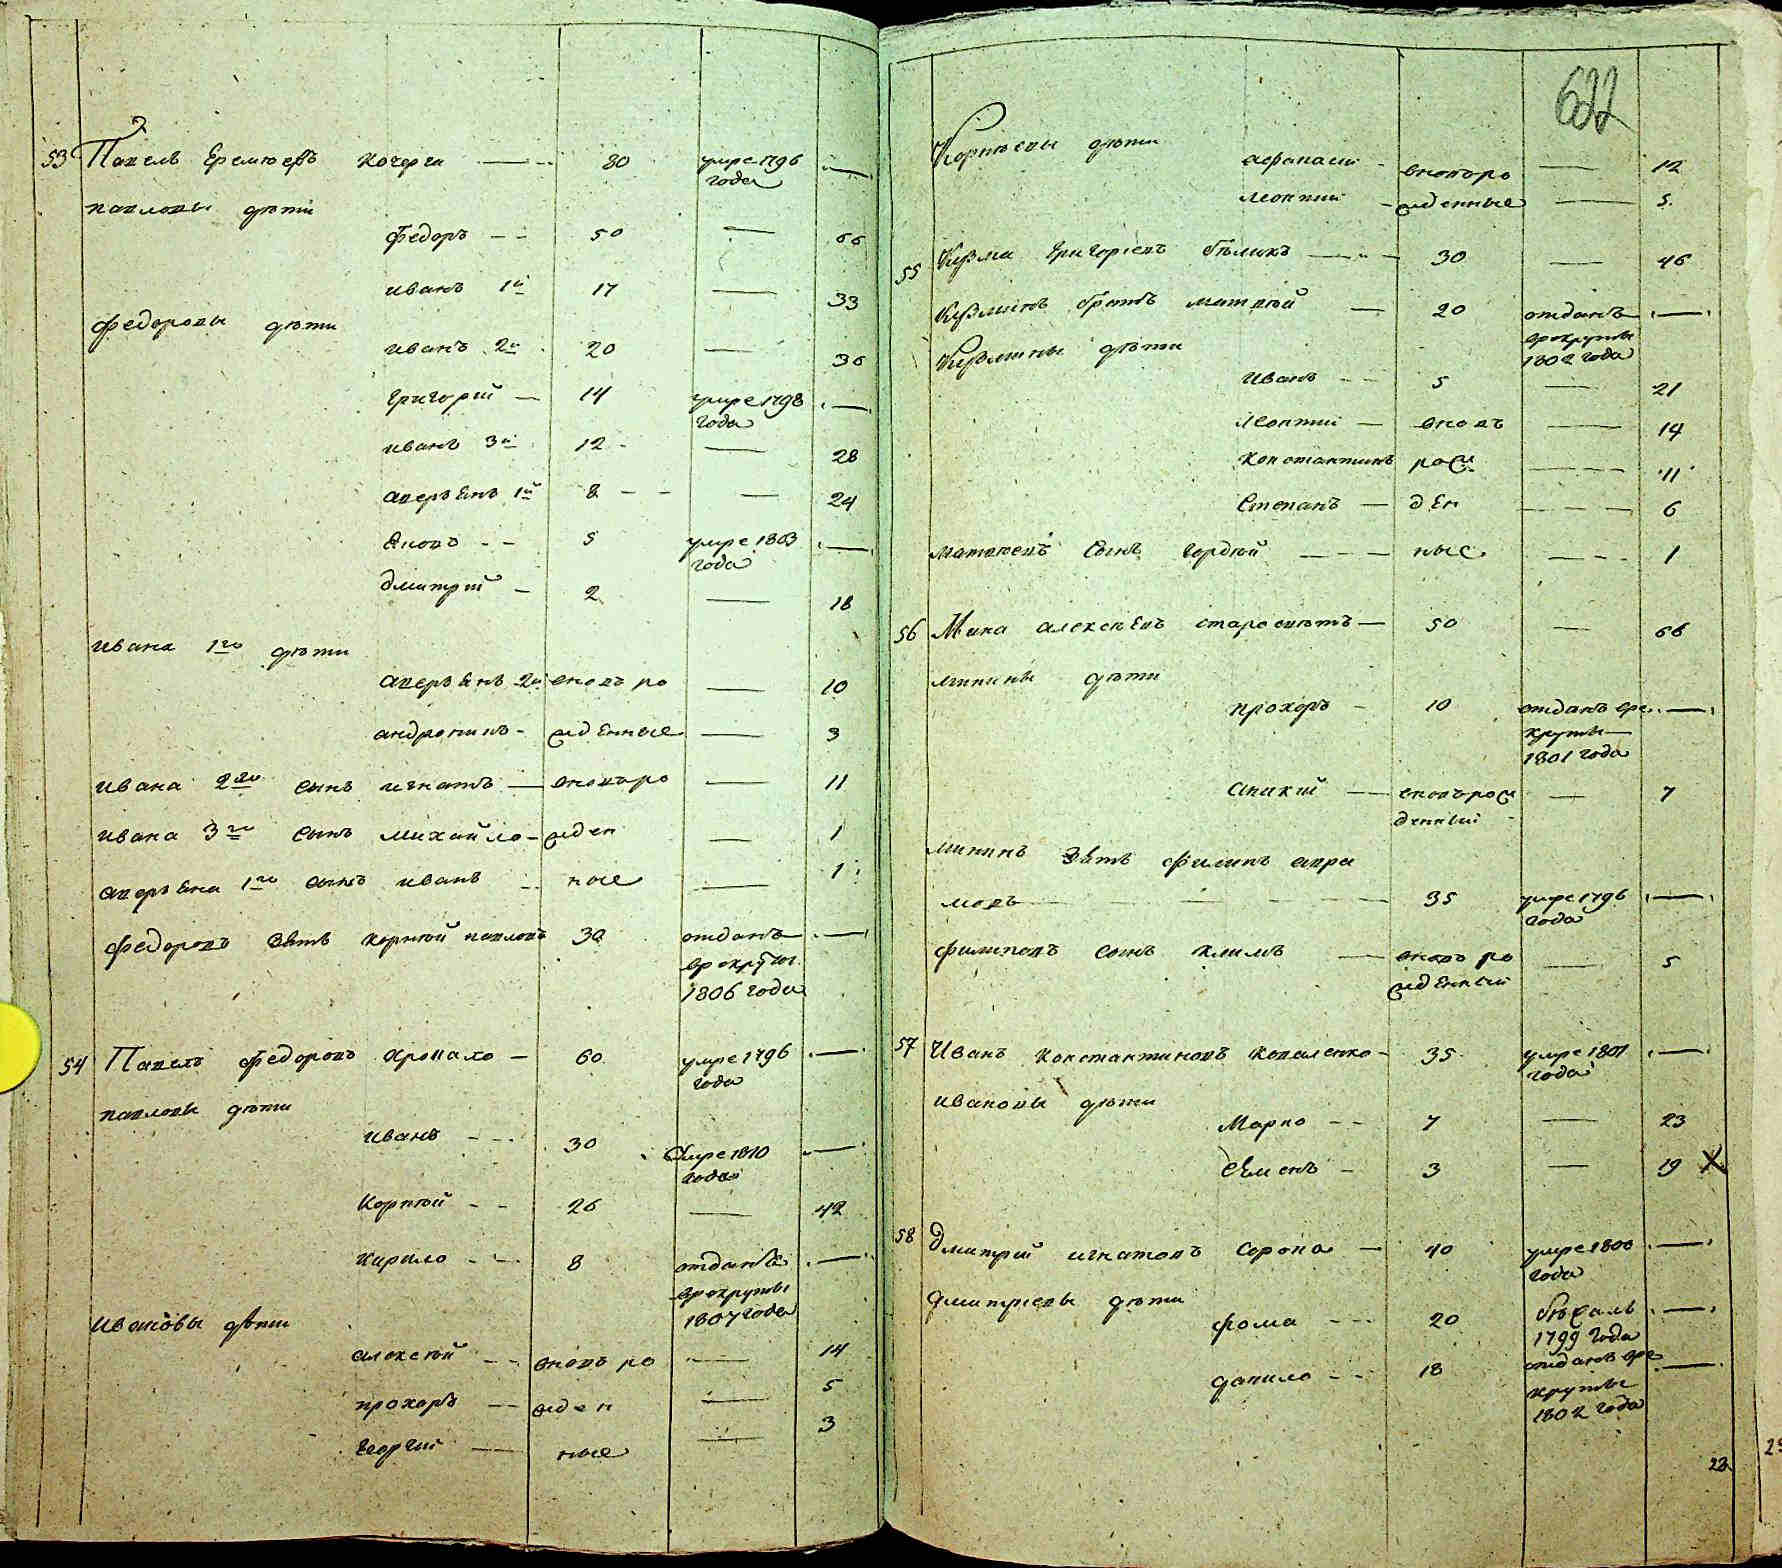 53 Павелъ Еремѣевъ Кочерга — 80 умре 1796 —
года
павловы дѣти
Федоръ — 50 — 66
иванъ 1й 17 — 33
федоровы дѣти
иванъ 2й 20 — 36
григорий — 14 умре 1798 —
года
иванъ 3й 12 — 28
аверъянъ 1й 8 — 24
Яковъ — 5 умре 1803 —
года
дмитрий — 2 — 18
ивана 1го дѣти
аверъянъ 2й вновь ро — 10
андроникъ — жденные — 3
ивана 2го сынъ игнатъ — вновьро — 11
ивана 3го сынъ михайло — жден — 1
аверъяна 1го сынъ иванъ — ные — 1
федоровъ зять корнѣй павловъ 30 отданъ —
врекруты
1806 года
54 Павелъ Федоровъ Хропало — 60 умре 1796 —
года
павловы дѣти
иванъ — 30 Умре 1810 —
года
Корнѣй — 26 — 42
Кирило — 8 отданъ —
врекруты
1807 года
Ивановы дѣти
алексѣй — вновь ро — 14
прохоръ — жден — 5
георгий — ные — 3
622
Корнѣевы дѣти
афанасий — вновьро — 12
леонтий — жденные — 5
55 Кузма григориевъ бѣликъ — 30 — 46
Кузминъ братъ матвѣй — 20 отданъ —
врекруты
1802 года
Кузмины дѣти
Иванъ — 5 — 21
Леонтий — вновь — 14
Константинъ рож — 11
Степанъ — ден — 6
матвѣевъ сынъ гордѣй — ные — 1
56 Мина алексѣевъ старосвѣтъ — 50 — 66
минины дѣти
прохоръ — 10 отданъ вре —
круты
1801 года
Аникий — вновьрож — 7
денный
мининъ зять филипъ авра
мовъ — 35 умре 1796 —
года
филиповъ сынъ климъ — вновь ро — 5
жденный
57 Иванъ Константиновъ Коваленко — 35 умре 1801 —
года
ивановы дѣти
Марко — 7 — 23
Семенъ — 3 — 19 X
58 Дмитрий игнатовъ Сорока — 40 умре 1800 —
года
дмитриевы дѣти
фома — 20 бѣжалъ —
1799 года
данило — 18 отданъ вре —
круты
1802 года
23